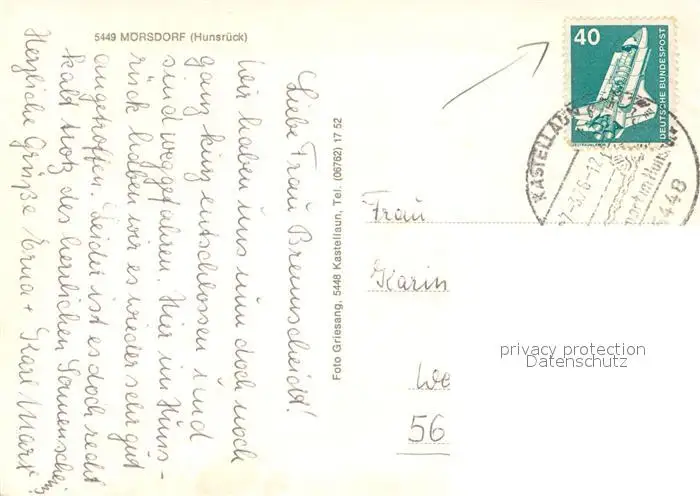 5449 MÖRSDORF (Hunsrück)
Liebe Frau Brennscheidt!
Wir haben uns nun doch noch
ganz kurz entschlossen und
sind weggefahren. Hier im Huns-
rück haben wir es wieder sehr gut
angetroffen. Leider ist es doch recht
kalt trotz des herrlichen Sonnenschein
Herzliche Grüße Erna + Karl Marx
Foto Griesang, 5448 Kastellaun, Tel. (06762) 17 52
40
DEUTSCHE BUNDESPOST
KASTELLAUN
5448
Frau
Karin
We
56
privacy protection
Datenschutz